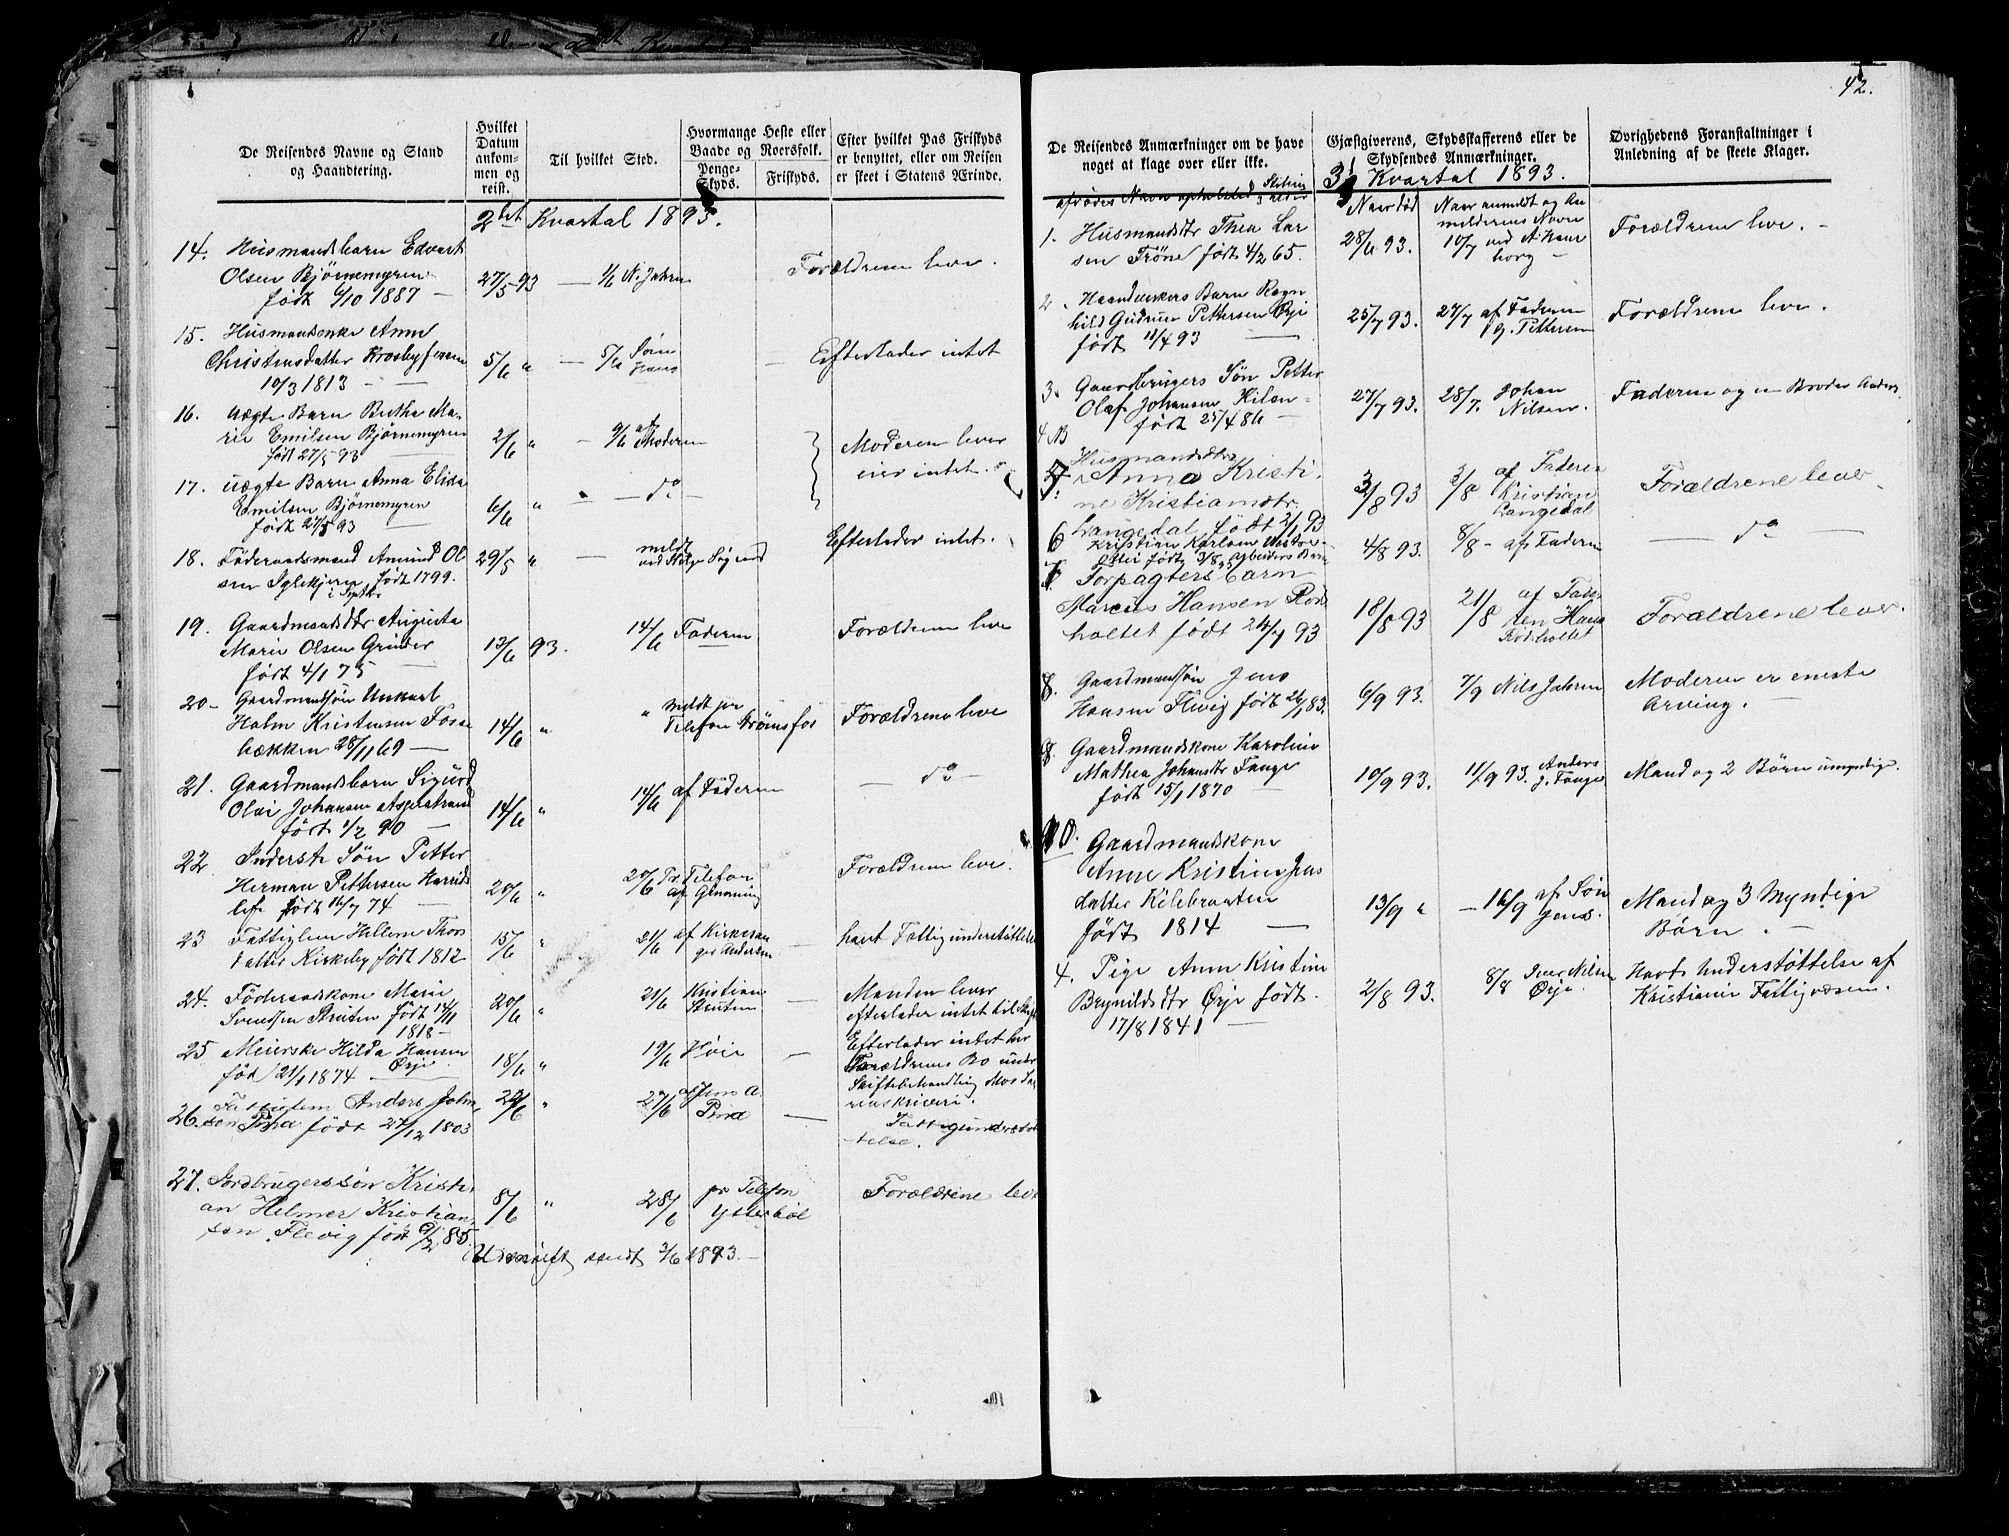 De Reisendes Navne og Stand
og Haandtering.
Hvilket
Datum
ankom-
men og
reist.
Til hvilket Sted.
Hvormange Heste eller
Baade og Roersfolk.
Penge-
Skyds.
Friskyds.
Efter hvilket Pas Friskyds
er benyttet, eller om Reisen
er skeet i Statens Ærinde.
2det Kvartal 1893.
14. Husmandsbarn Edvart
Olsen Bjørnemyren
født 6/10 1887 —
27/5 93 — 1/6 N. Jahren
Forældrene leve.
15. Husmandsenke Anne
Christensdatter Krosbyferren
10/3 1813 —
5/6 " — 5/6 Søn
Hans
Efterlader intet
16. Uægte Barn Bertha Ma-
rie Emilsen Bjørnemyren
født 27/5 93 —
2/6 " — 9/6 af Moderen
Moderen lever
eier intet.
17. Uægte Barn Anna Elida
Emilsen Bjørnemyren
født 27/5 93 —
6/6 " — do —
18. Føderaadsmand Amund Ol-
sen født 1799.
i Septbr
29/5 " — meldt
ved
Efterlader intet.
19. Gaardmandsdtr Augusta
Marie Olsen Grinder
født 4/1 75 —
13/6 93. 14/6 Faderen
Forældrene leve
20 - Gaardmandssøn
Holm Kristensen Fosse-
bækken 28/11 69 —
14/6 " " meldt pr
Telefon Strømsfos
Forældrene leve
21. Gaardmandsbarn Sigurd
Olai Johansen Aspestrand
født 1/2 90 —
14/6 " 14/6 af Faderen
— do —
22 Inderste Søn Petter
Herman Pettersen
født 16/7 74 —
20/6 " 20/6 Pr. Telefon
af
Forældrene leve.
23 Fattiglem Hellene Thors
datter Kirkeby født 1812
15/6 " 21/6 af Kirkesan-
ger Andersen —
havt Fattigunderstøttelse
24. Føderaadskone Marie
Svendsen Struten født 14/11
1818 —
20/6 " 21/6 Kristian
Struten —
Manden lever
efterlader intet til skifte
25 Meierske Hilda Hansen
Ørje
født 21/1 1874 —
18/6 " 19/6 Høie —
Efterlader intet her
Forældrenes Bo under
Skiftebehandling Moss So-
renskriveri.
26. Fattiglem Anders John-
sen født 27/12 1803
22/6 " 27/6 af Jens A.
—
Fattigunderstøt-
telse.
27. Jordbrugerssøn Kristi-
an Helmer Kristian-
sen Flevig født 9/2 85.
8/6 " 28/6 pr Telefon
Ysterbøl
Forældrene leve
Udskrift sendt 3/6 1893. —
42.
De Reisendes Anmærkninger om de have
noget at klage over eller ikke.
Gjæstgiverens, Skydsskafferens eller de
Skydsendes Anmærkninger.
Øvrighedens Foranstaltninger i
Anledning af de skeete Klager.
3die Kvartal 1893.
afdødes Navn opholdsted Stilling
& alder
Naar død
Naar anmeldt og An-
melderens Navn
1. Husmandsdtr Thea Lar-
sen Trøne født 4/2 65.
28/6 93. 10/7 ved A. Kaur-
borg —
Forældrene leve. -
2. Haandverkers Barn Ragn-
hild Gudrun Pettersen Ørje
født 11/4 93 —
25/7 93. 27/7 af Faderen
g. Pettersen
Forældrene leve.
3. Gaardbrugers Søn Petter
Olaf Johansen Kilen -
født 25/4 86 —
27/7 93. 28/7. Johan
Nilsen.
Faderen og en Broder Anders
4 NB
5. Husmandsdtr
Anna Kristi-
ne Kristiansdtr
Langedal født 2/1 93
3/8 93 3/8 af Faderen
Kristian
Langedal
Forældrene lever.
6 Kristian Karlsen
født 3/8 Arbeiders Barn
4/8 93. 8/8 - af Faderen
— do —
7. Forpagters barn
Marcus Hansen Rød-
holtet født 24/7 93
18/8 93 21/8 af Fade-
ren Hans
Rødholtet
Forældrene lever.
8. Gaardmandssøn Jens
Hansen Flevig født 26/1 83.
6/9 93. 7/9 Nils Jahren
Moderen er eneste
Arving.
9. Gaardmandskone Karoline
Mathea Johansdtr Tange
født 15/1 1870 —
10/9 93. 11/9 93. Anders
J. Tange
Mand og 2 Børn umyndige.
10. Gaardmandskone
Anne Kristine Jens
datter Kilebraaten
født 1814 —
13/9 " — 16/9 af Søn
Jens.
Mand og 3 Myndige
Børn. —
4. Pige Anne Kristine
Brynildsdtr Ørje født
17/8 1841 —
2/8 93. 8/8 Iver Nilsen
Ørje
Havt Understøttelse af
Kristiania Fattigvæsen.